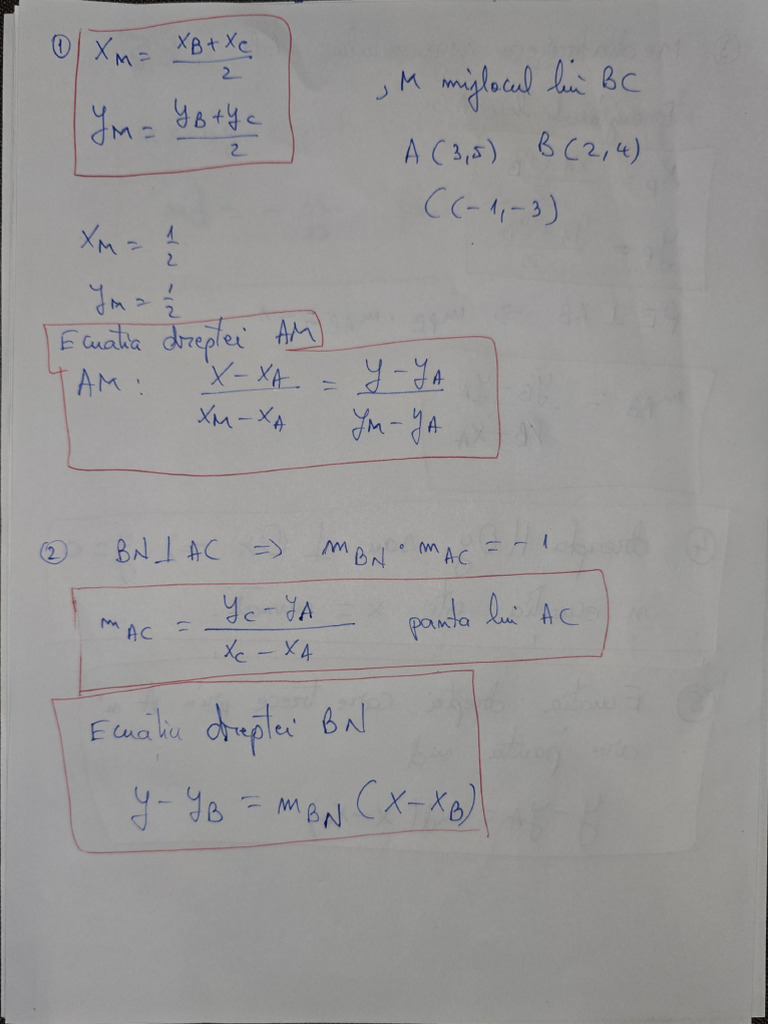 ① x_M = (x_B + x_C)/2
y_M = (y_B + y_C)/2
, M mijlocul lui BC
A (3,5) B (2,4)
C (-1,-3)
x_M = 1/2
y_M = 1/2
Ecuatia dreptei AM
AM: (x - x_A)/(x_M - x_A) = (y - y_A)/(y_M - y_A)
② BN ⊥ AC => m_BN · m_AC = -1
m_AC = (y_C - y_A)/(x_C - x_A) panta lui AC
Ecuatia dreptei BN
y - y_B = m_BN (x - x_B)